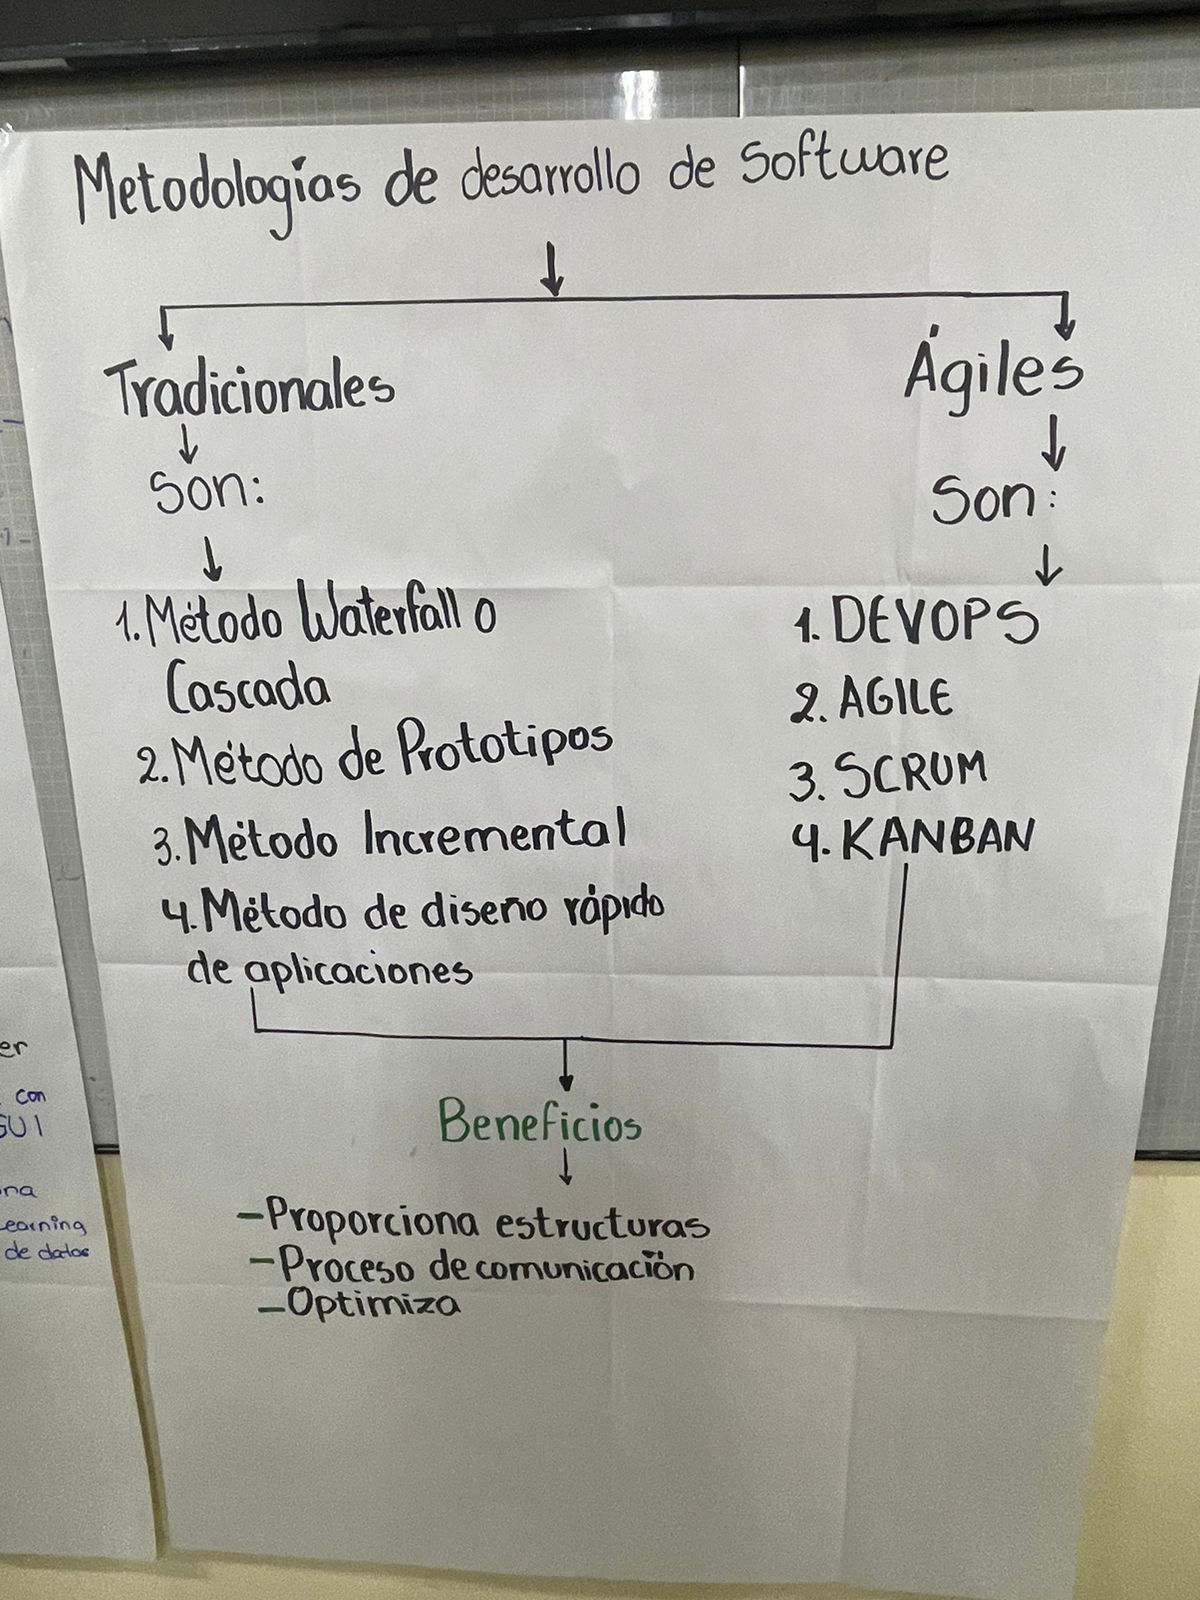 Metodologías de desarrollo de Software
Tradicionales
Son:
1. Método Waterfall o
Cascada
2. Método de Prototipos
3. Método Incremental
4. Método de diseño rápido
de aplicaciones
Ágiles
Son:
1. DEVOPS
2. AGILE
3. SCRUM
4. KANBAN
Beneficios
- Proporciona estructuras
- Proceso de comunicación
- Optimiza
con
GUI
Learning
de datos